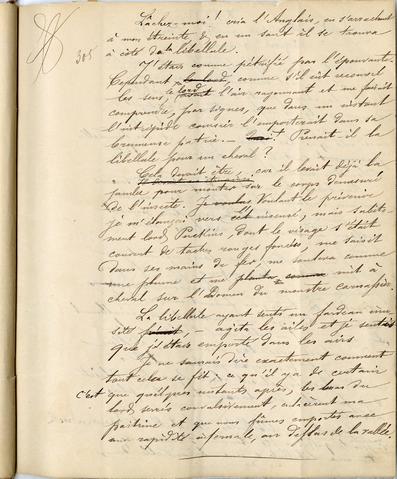 305
Lâchez-moi! cria l'Anglais, en s'arrachant
à mon étreinte, & en un saut il se trouva
à côté de la libellule.
J'étais comme pétrifié par l'épouvante.
Cependant le lord, comme s'il eût reconnu
les sens, avait l'air rayonnant et me faisait
comprendre, par signes, que dans un instant
l'intrépide coursier l'emporterait dans sa
brumeuse patrie. — Prenait-il la
libellule pour un cheval?
Cela devait être, car il levait déjà la
jambe pour monter sur le corps
de l'insecte. Voulant le prévenir
je m'élançai vers cet insensé, mais subite-
ment lord Puckins, dont le visage s'était
couvert de taches rouges foncées, me saisit
dans ses mains de fer, me souleva comme
une plume et me mit à
cheval sur l'abdomen du monstre carnassier.
La libellule ayant senti un fardeau
sitôt, — agita les ailes et je sentis
que j'étais emporté dans les airs
Je ne saurais dire exactement comment
tout cela se fit, ce qu'il y a de certain
c'est que quelques instants après, les bras du
lord, serrés convulsivement, enlacèrent ma
poitrine et que nous fûmes emportés avec
une rapidité infernale, au dessus de la vallée.